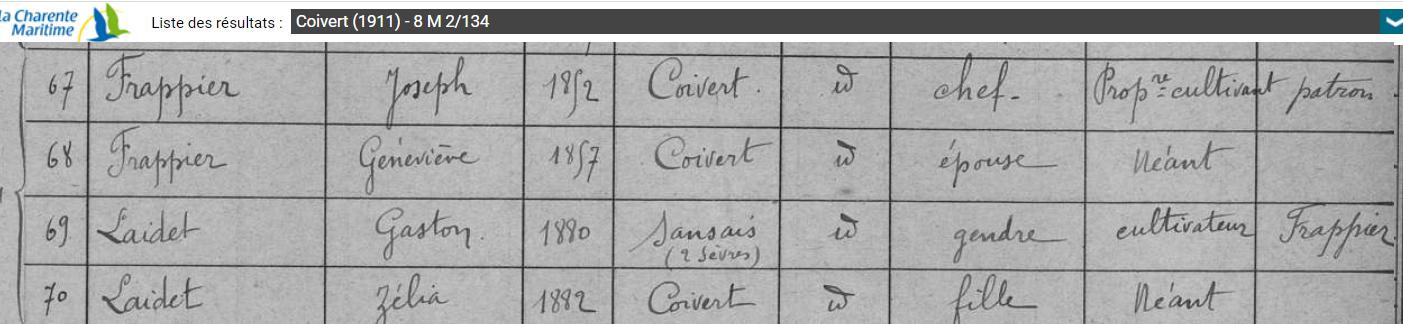 la Charente
Maritime
Liste des résultats : Coivert (1911) - 8 M 2/134
67 Frappier Joseph 1852 Coivert. id chef. Prop.re cultivant patron
68 Frappier Géneviève 1857 Coivert id épouse Néant
69 Laidet Gaston. 1880 Sansais id gendre cultivateur Frappier
(2 Sèvres)
70 Laidet Zélia 1882 Coivert id fille Néant